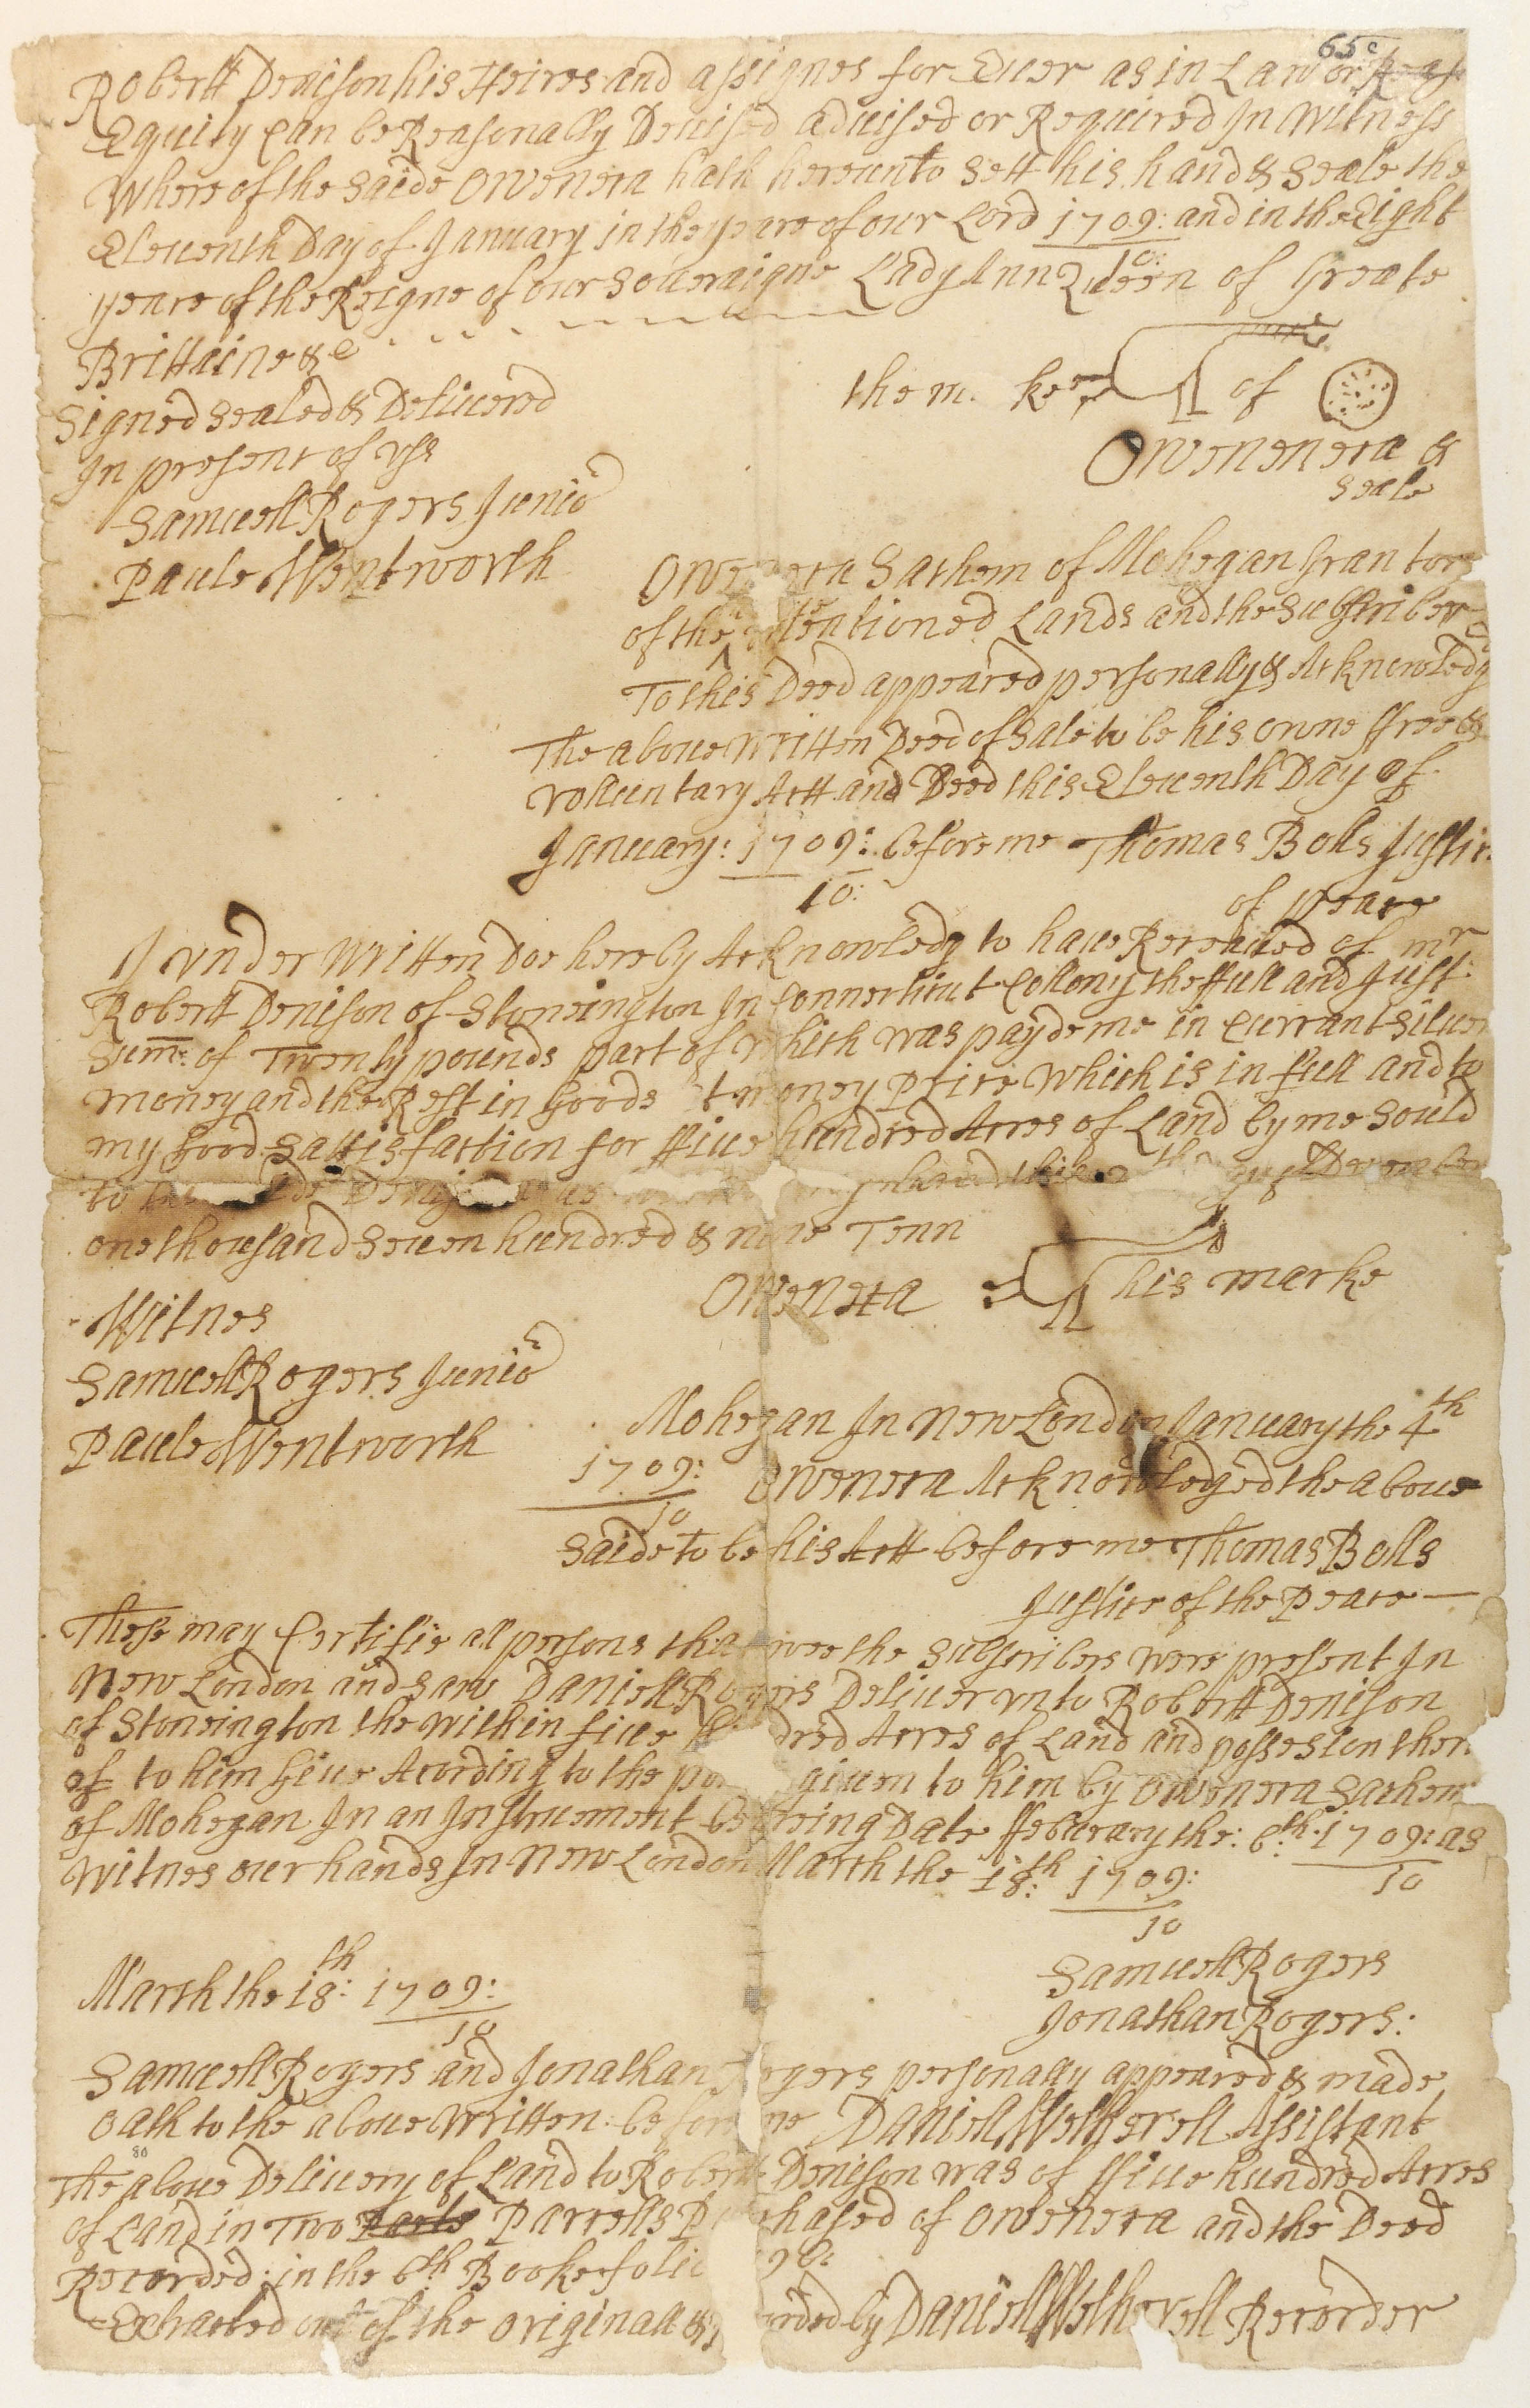 65c
Robertt Denison his Heires and assignes for Euer as in Law or
Equity Can be Reasonally Deuised aduised or Required In Witness
Where of the saide Oweneca hath hereunto sett his hand & seale the
Eleuenth Day of January in the yeare of our Lord 1709: and in the Eight
10:
yeare of the Reigne of our Soueraigne Lady Ann Queen of Greate
Brittaine &c
Signed Sealed & Deliuered
In present of vss
Samuell Rogers Junior
Paule Wentworth
the m. ke of
Oweneneca &
seale
Oweneca Sachem of Mohegan Grantor
of the mentioned Lands and the Subscriber
To this Deed appeared personally & Acknowledg
The aboue Written Deed of Sale to be his owne ffree &
volluntary Actt and Deed this Eleuenth Day of
January: 1709: before me Thomas Bolls Justic
10:
of peace
I vnder Written doe hereby Acknowledg to haue Receiued of mr
Robertt Denison of Stoneington In Connecticut Collony the ffull and Just
Sume: of Twenty pounds part of which was payde me in Currant Siluer
money and the Rest in Goods money price Which is in full and to
my Good Sattisfaction for ffiue hundred Acres of Land by me Sould
to hand December
one thousand Seuen hundred & nine Tenn
Oweneca his marke
Witnes
Samuell Rogers Junior
Paule Wentworth
Mohegan In New London January the 4th
1709: Oweneca Acknowledged the aboue
10
Saide to be his Actt before me Thomas Bolls
Justice of the Peace
These may Certifie all persons that wee the Subscribers were present In
New London and saw Daniell Rogers Deliuer vnto Robertt Denison
of Stoneington the within fiue dred Acres of Land and possesion ther
of to him Giue Acording to the po giuen to him by Oweneca Sachem
of Mohegan In an Instrument Beareing Date ffeburary the: 6th: 1709: as
10
Witnes our hands In New London March the 18:th 1709:
10
Samuell Rogers
Jonathan Rogers:
March the 18:th 1709:
10
Samuell Rogers and Jonathan Rogers personally appeared & made
Oath to the aboue Written: before me Daniell Wetherell Assistant
80
The aboue Deliuery of Land to Robertt Denison was of ffiue hundred Acres
of Land in Two Parcells Purchased of Oweneca and the Deed
Recorded: in the 6th Booke folio
Extracted out of the originall & orded by Daniell Wetherell Recorder